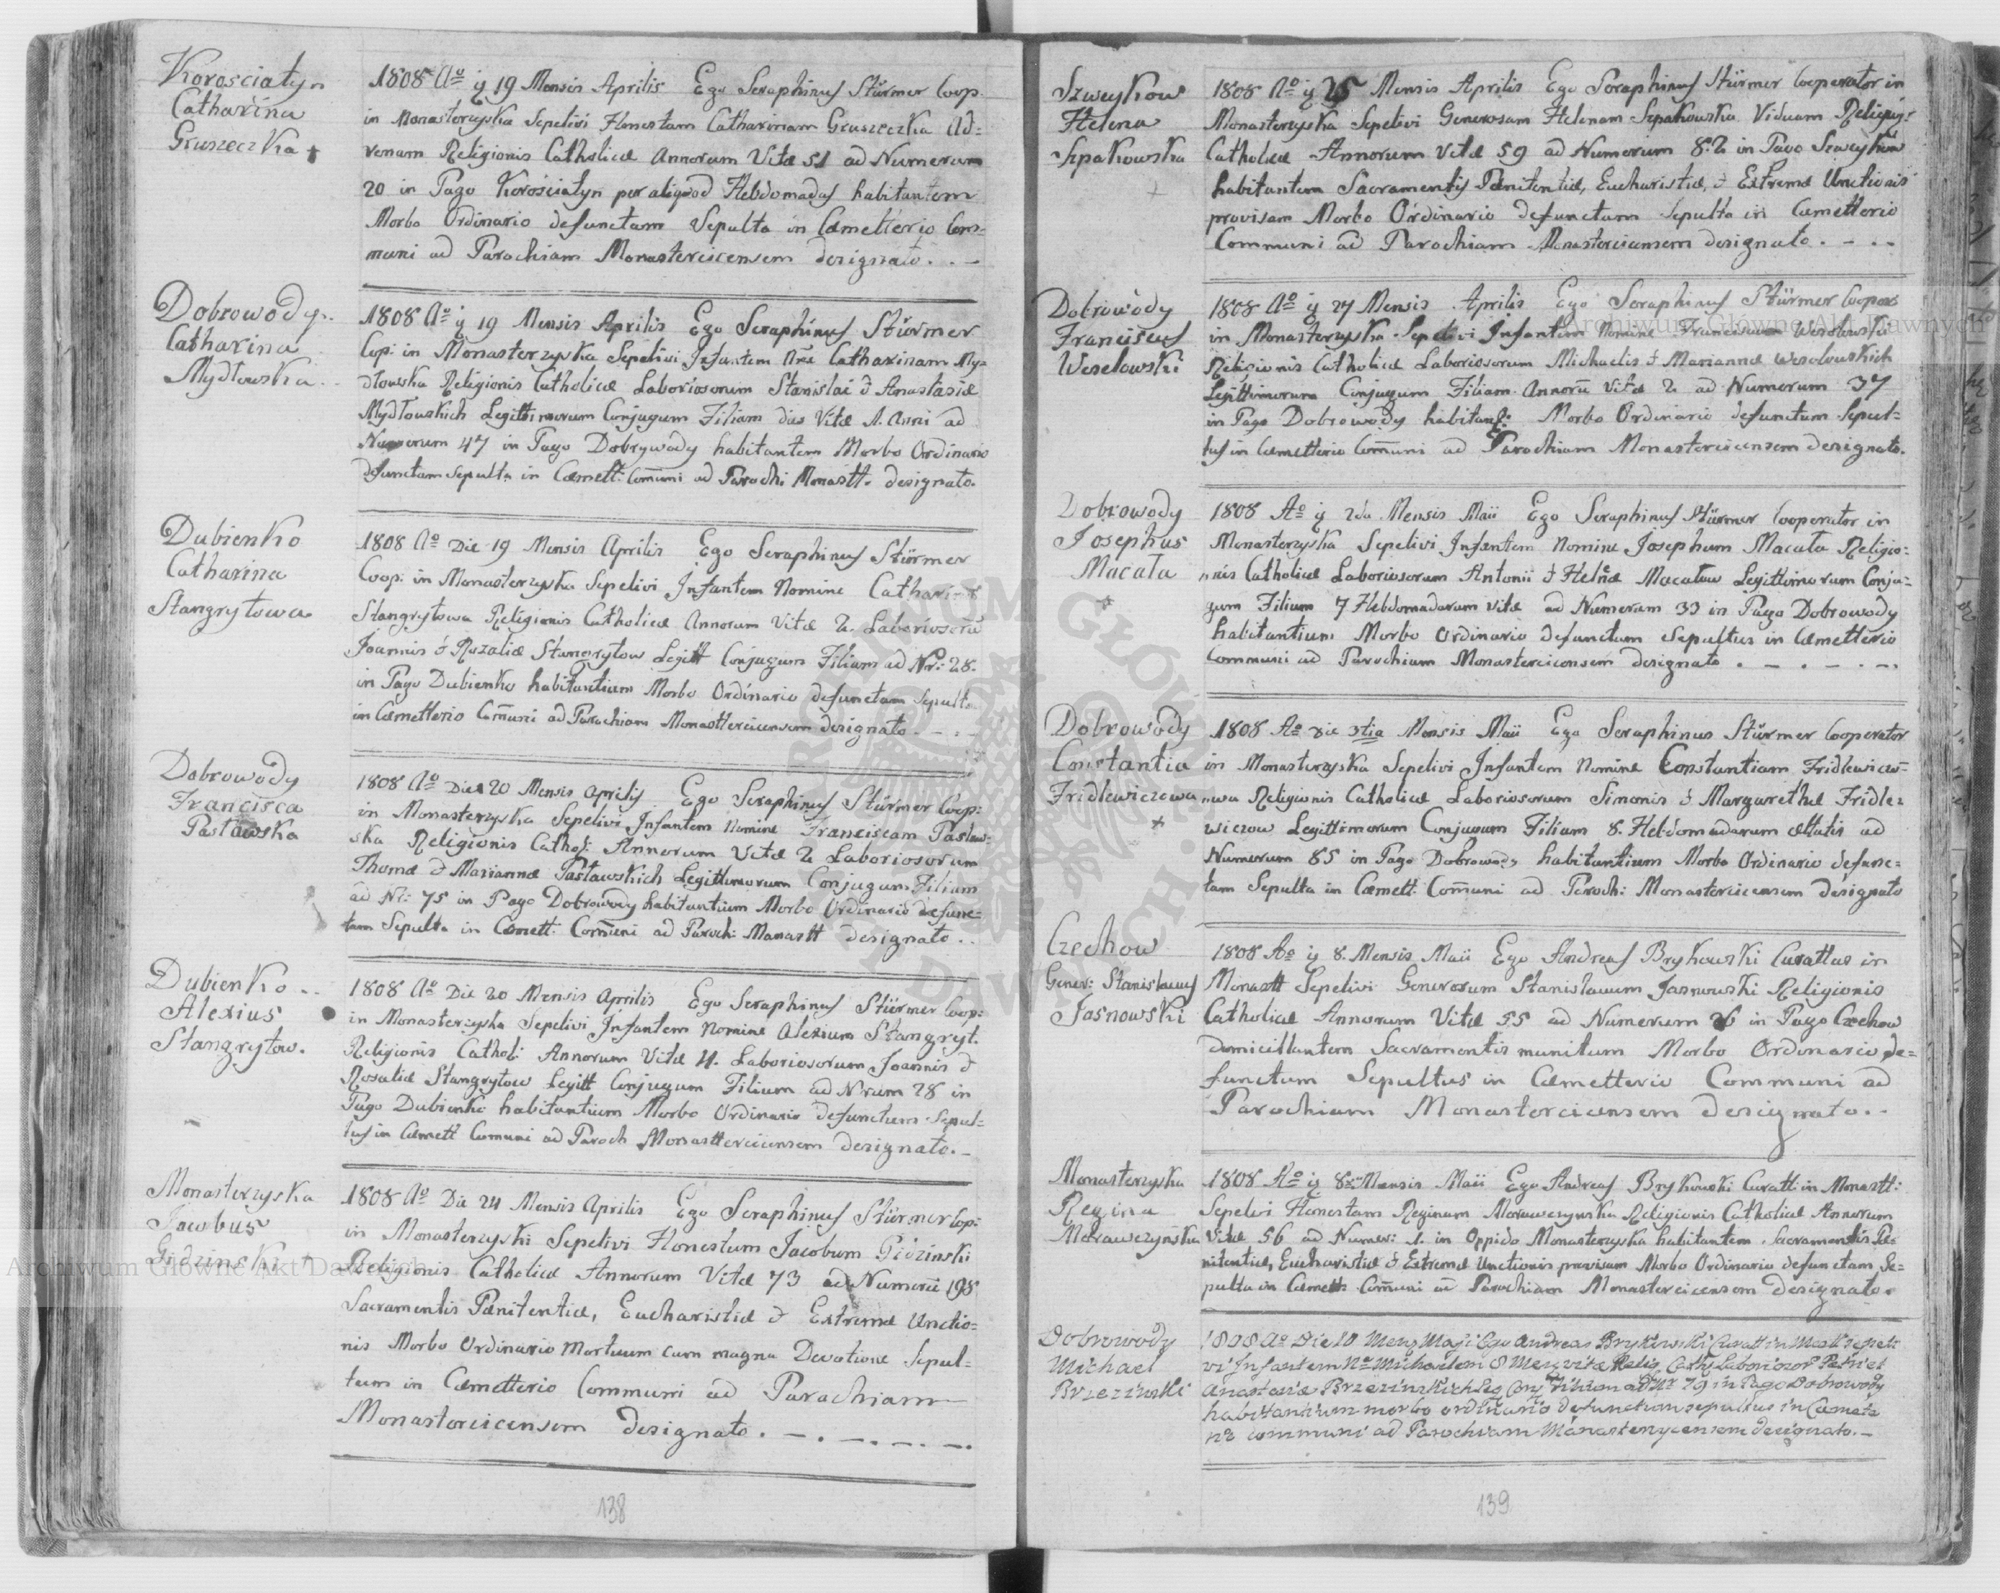 Korosciatyn
Catharina
Gruszeczka +
1808 Aº ÿ 19 Mensis Aprilis Ego Seraphinus Stürmer Coop.
in Monasterzyska Sepelivi Honestam Catharinam Gruszeczka Ad-
venam Religionis Catholicæ Annorum Vitæ 51 ad Numerum
20 in Pago Korościatyn per aliquod Hebdomadas habitantem
Morbo Ordinario defunctam Sepulta in Cæmetterio Com-
muni ad Parochiam Monasterciscensem designato. . —
Dobrowody
Catharina
Mydłowska
1808 Aº ÿ 19 Mensis Aprilis Ego Seraphinus Stürmer
Cop: in Monasterzyska Sepelivi Infantem Catharinam My-
dłowska Religionis Catholicæ Laboriosorum Stanislai & Anastasiæ
Mydłowskich Legittimorum Conjugum Filiam Vitæ 1. Anni ad
Numerum 47 in Pago Dobrywody habitantem Morbo Ordinario
defunctam Sepulta in Cæmett: Com̄uni ad Parochi Monastt. designato.
Dubienko
Catharina
Stangrytowa
1808 Aº Die 19 Mensis Aprilis Ego Seraphinus Stürmer
Coop: in Monasterzyska Sepelivi Infantem Nomine
Stangrytowa Religionis Catholicæ Annorum Vitæ 2. Laboriosorū
Joannis & Rozaliæ Stangrytow Legitt Conjugum Filiam ad Nr: 28.
in Pago Dubienko habitantium Morbo Ordinario defunctam Sepulta
in Cæmetterio Com̄uni ad Parochiam Monasttercicensem designato. — . —
Dobrowody
Francisca
Pasławska
1808 Aº Die 20 Mensis Aprilis Ego Seraphinus Stürmer Coop:
in Monasterzyska Sepelivi Infantem Nomine Franciscam Pasław-
ska Religionis Cathol: Annorum Vitæ 2 Laboriosorum
Thomæ & Mariannæ Pasławskich Legittimorum Conjugum Filiam
ad Nr: 75 in Pago Dobrowody habitantium Morbo Ordinario defunc-
tam Sepulta in Cæmett. Com̄uni ad Paroch: Monastt designato. .
Dubienko
Alexius
Stangrytow.
1808 Aº Die 20 Mensis Aprilis Ego Seraphinus Stürmer Coop:
in Monasterzyska Sepelivi Infantem Nomine Alexium Stangryt.
Religionis Catholi Annorum Vitæ 4. Laboriosorum Joannis &
Rosaliæ Stangrytow Legitt Conjugum Filium ad Nrum 28 in
Pago Dubienko habitantium Morbo Ordinario defunctum Sepul-
tus in Cæmett Comuni ad Paroch Monasttercicensem designato. —
Monasterzyska
Jacobus
Gidzinski +
1808 Aº Die 24 Mensis Aprilis Ego Seraphinus Stürmer Cop:
in Monasterzyski Sepelivi Honestum Jacobum Gidzinski
Religionis Catholicæ Annorum Vitæ 73 ad Numerū 198
Sacramentis Pænitentiæ, Eucharistiæ & Extremæ Unctio-
nis Morbo Ordinario Mortuum cum magna Devotione Sepul-
tum in Cæmetterio Communi ad Parochiam
Monastercicensem designato. — . — . — . — .
138
Szweykow
Helena
Szpakowska
1808 Aº ÿ 25 Mensis Aprilis Ego Seraphinus Stürmer Cooperator in
Monasterzyska Sepelivi Generosam Helenam Szpakowska Viduam
Catholicæ Annorum Vitæ 59 ad Numerum 82 in Pago Szweyków
habitantem Sacramentis Pænitentiæ, Eucharistiæ, & Extremæ Unctionis
provisam Morbo Ordinario defunctam Sepulta in Cæmetterio
Communi ad Parochiam Monastercicensem designato. — . .
Dobrowody
Franciscus
Weselowski
1808 Aº ÿ 27 Mensis Aprilis Ego Seraphinus Stürmer
in Monasterzyska Sepelivi Infantem Nomine Franciscum
Religionis Catholicæ Laboriosorum Michaelis & Mariannæ Wesolowskich
Legittimorum Conjugum Filium Annorū Vitæ 2 ad Numerum 37
in Pago Dobrowody Morbo Ordinario defunctum Sepul-
tus in Cæmetterio Com̄uni ad Parochiam Monastercicensem designato.
Dobrowody
Josephus
Macała
1808 Aº ÿ 2da Mensis Maii Ego Seraphinus Stürmer Cooperator in
Monasterzyska Sepelivi Infantem Nomine Josephum Macała Religio-
nis Catholicæ Laboriosorum Antonii & Helenæ Macałow Legittimorum Conju-
gum Filium 7 Hebdomadarum Vitæ ad Numerum 33 in Pago Dobrowody
habitantium Morbo Ordinario defunctum Sepultus in Cæmetterio
Communi ad Parochiam Monastercicensem designato . — . — . — .
Dobrowody
Constantia
Fridlewiczowa
1808 Aº die 3tia Mensis Maii Ego Seraphinus Stürmer Cooperator
in Monasterzyska Sepelivi Infantem Nomine Constantiam
Religionis Catholicæ Laboriosorum Simonis & Margarethæ Fridle-
wiczow Legittimorum Conjugum Filiam 8. Hebdomadarum Ætatis ad
Numerum 85 in Pago Dobrowody habitantium Morbo Ordinario defunc-
tam Sepulta in Cæmett. Com̄uni ad Paroch: Monastercicensem designato
Czechow
Gener: Stanislaus
Jasnowski
1808 Aº ÿ 8. Mensis Maii Ego Andreas Brykowski Curattus in
Monastt Sepelivi Generosum Stanislaum Jasnowski Religionis
Catholicæ Annorum Vitæ 55 ad Numerum 26 in Pago Czechow
domicillantem Sacramentis munitum Morbo Ordinario de-
functum Sepultus in Cæmetterio Communi ad
Parochiam Monastercicensem designato. .
Monasterzyska
Regina
Morawczyńska
1808 Aº ÿ 8. Mensis Maii Ego Andreas Brykowski Curatt: in Monastt:
Sepelivi Honestam Reginam Morawczynska Religionis Catholicæ Annorum
Vitæ 56 ad Numer: 1. in Oppido Monasterzyska habitantem Sacramentis Pæ-
nitentiæ, Eucharistiæ & Extremæ Unctionis provisam Morbo Ordinario defunctam Se-
pulta in Cæmett: Com̄uni ad Parochiam Monastercicensem designato.
Dobrowody
Michael
Brzezinski
1808 Aº Die 10 Mens Maji Ego Andreas Brykowski Curatt in Mostt sepeli
vi Infantem Michaelem 8 Men vitæ Relig Cath Laboriosor Petri et
Anastasiæ Brzezinskich Leg Conj Filium ad Nr 79 in Pago Dobrowody
habitantium morbo ordinario defunctum sepultus in Cæmete
rio communi ad Parochiam Monasterzycensem designato. —
139
Archiwum Główne Akt Dawnych
Archiwum Główne Akt Dawnych
ARCHIWUM GŁÓWNE AKT DAWNYCH